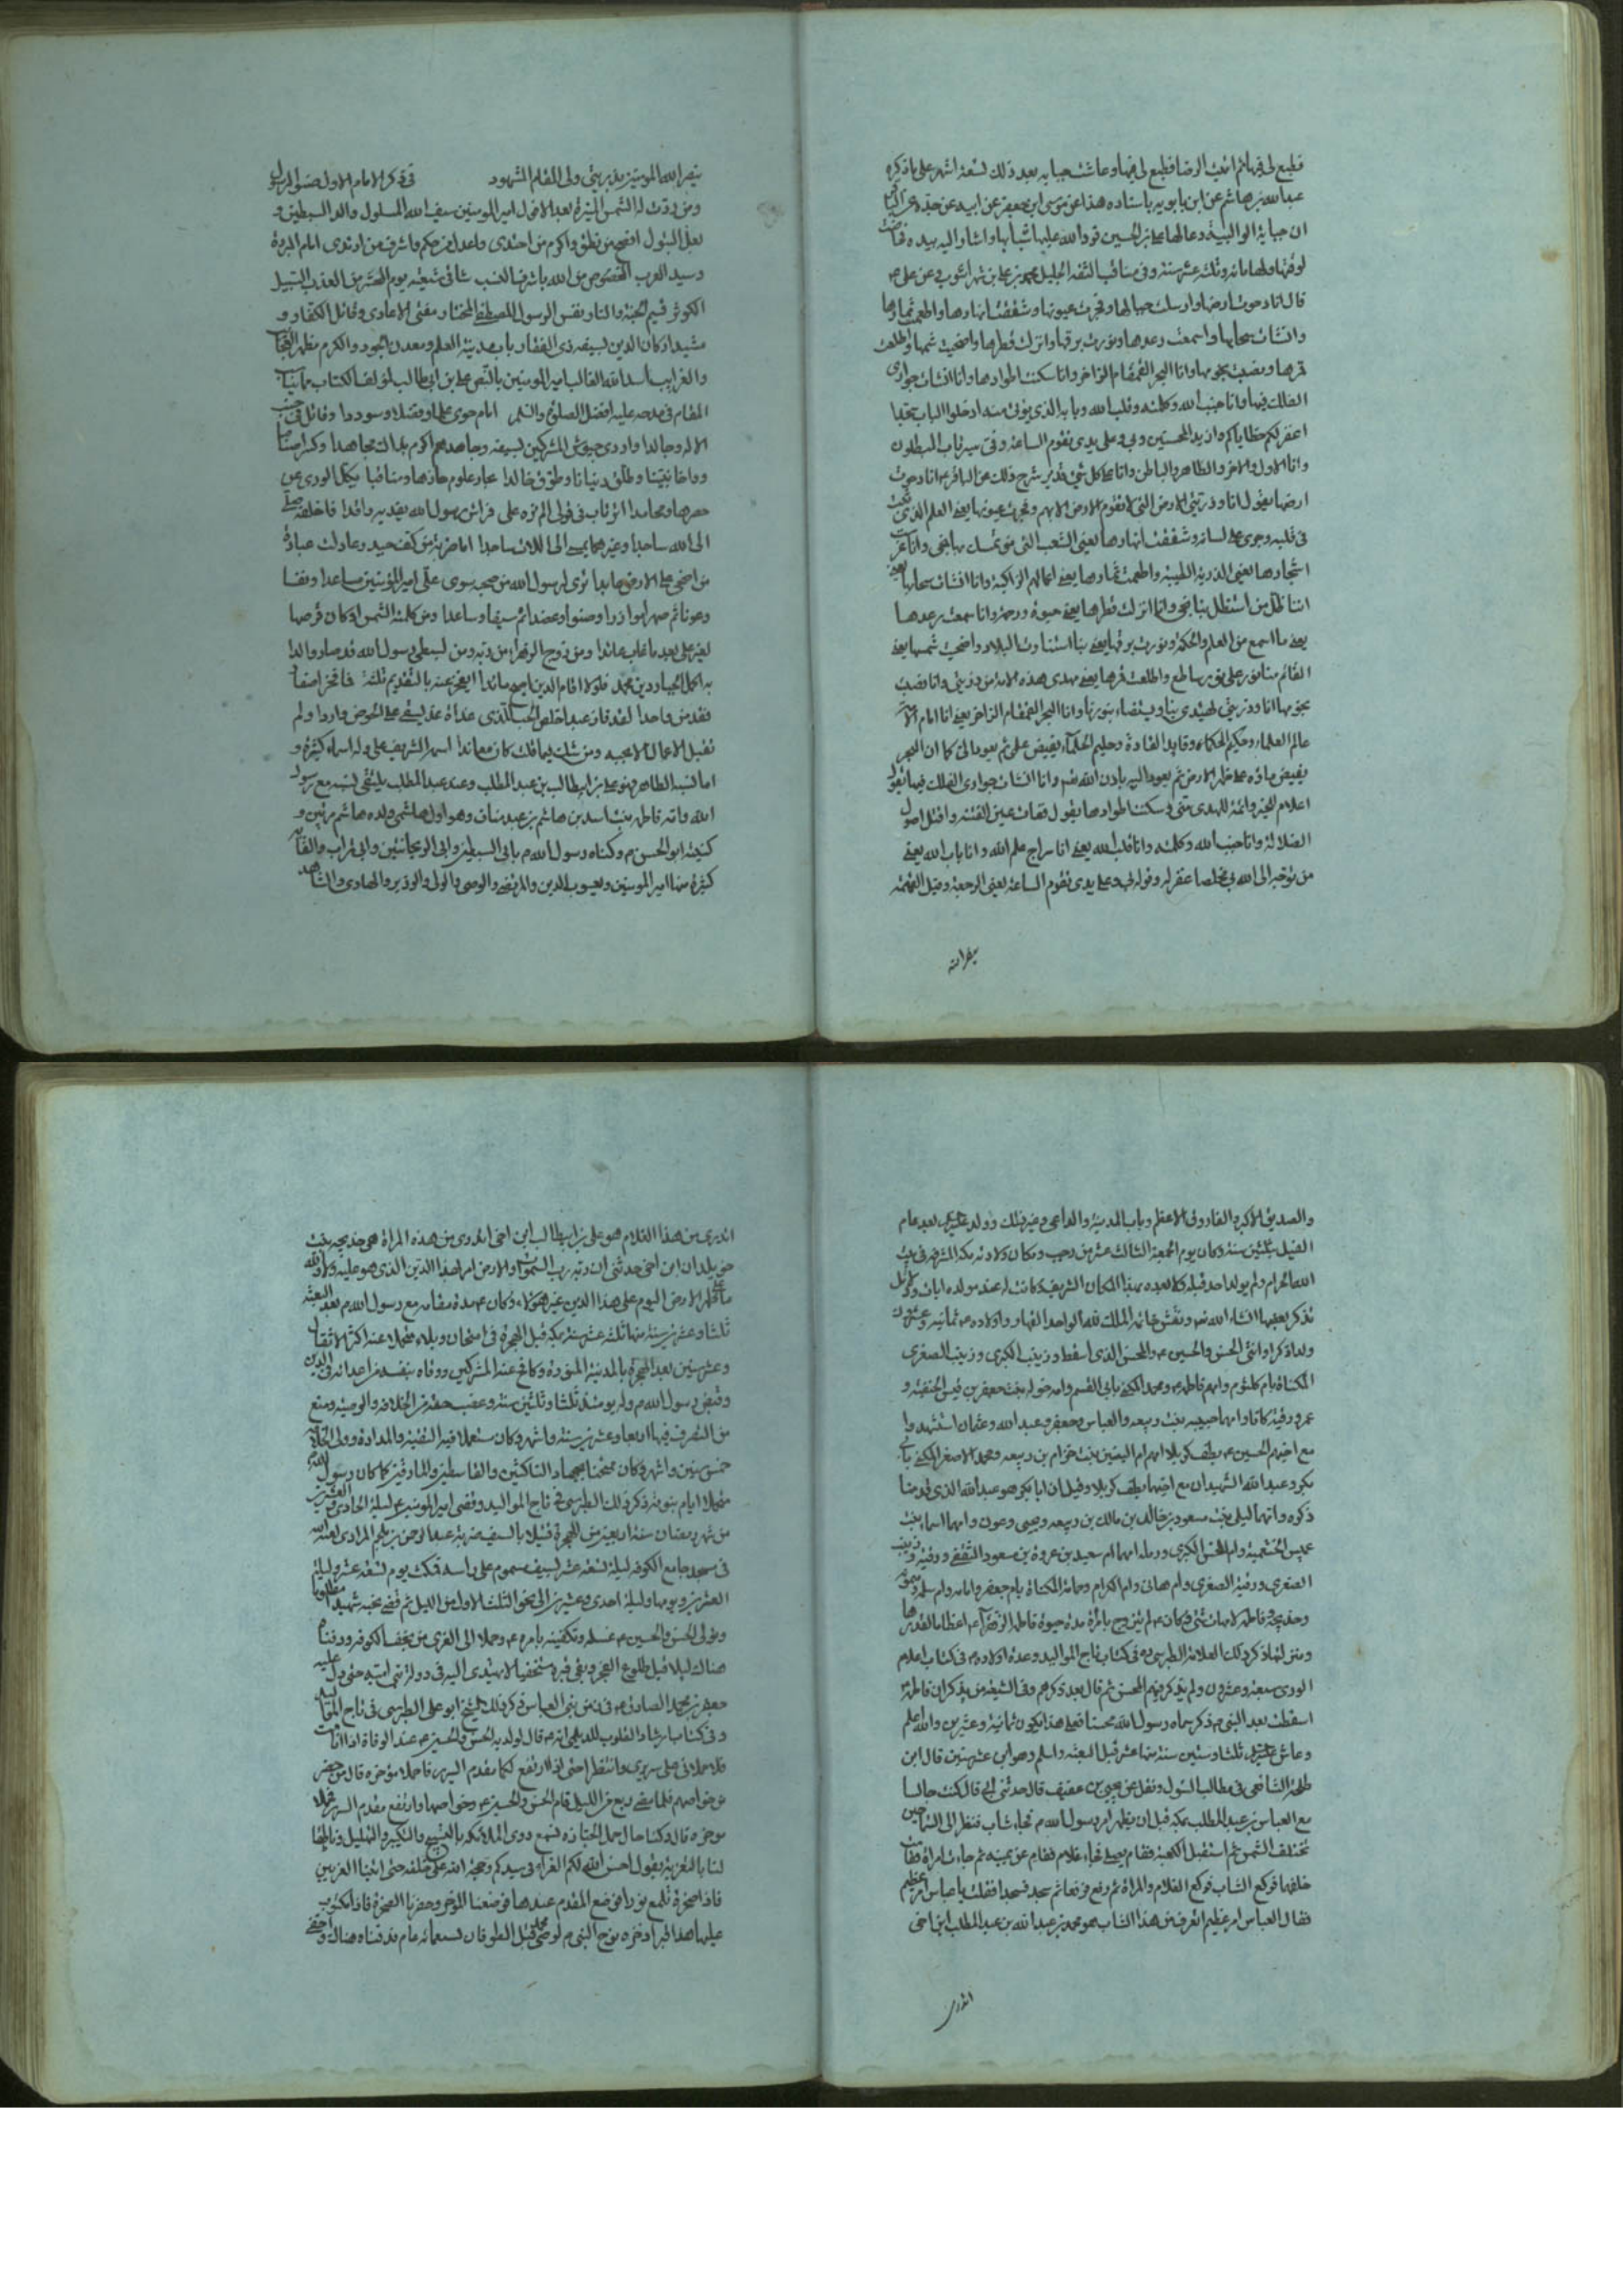 فطبع لى فيها ثم اتيت الرضا فطبع لى فيها وعاشت حبابه بعد ذلك تسعة اشهر على ما ذكره
عبد الله بن هاشم عن ابن بابويه باسناده هذا عن موسى ابن جعفر عن ابيه عن جده عن الباقر
ان حبابة الوالبية دعا لها على بن الحسين فرد الله عليها شبابها واشار اليه بيده فحاضت
لوقتها ولها مائه وثلثه عشر سنة وفى مناقب الثقه الجليل محمد بن على بن شهر اشوب وعن على ع
قال انا دحوت ارضها وارسلت جبالها وفجرت عيونها وشققت انهارها واطعمت ثمارها
وانشات سحابها واسمعت رعدها ونورت برقها وانزلت قطرها واضحيت شمسها واطلعت
قمرها ونصبت نجومها وانا البحر القمقام الزاخر وانا سكنت اطوادها وانا انشات جوارى
الفلك فيها وانا جنب الله وكلمته وقلب الله وبابه الذى يؤتى منه ادخلوا الباب سجدا
اغفر لكم خطاياكم وازيد المحسنين وبى وعلى يدى تقوم الساعة وفى يرتاب المبطلون
وانا الاول والاخر والظاهر والباطن وانا بكل شئ شرح ذلك عن الباقر ع انا دحوت
ارضها يقول انا وذريتى الارض التى لا تقوم الارض الا بهم وفجرت عيونها يعنى العلم الذى ثبت
فى قلبه وجرى على لسانه وشققت انهارها يعنى الشعب التى من تمسك بها نجى وانا غرست
اشجارها يعنى الذرية الطيبة واطعمت ثمارها يعنى اعمالهم الزاكية وانا انشات سحابها يعنى
انا ظل من استظل بنا نجى وانا انزلت قطرها يعنى حيوة ورحمة وانا سمعت رعدها
يعنى ما اسمع من العلم والحكمة ونورت برقها يعنى بنا استنارت البلاد واضحيت شمسها يعنى
القائم منا نور على نور ساطع واطلعت قمرها يعنى مهدى هذه الامة من ذريتى وانا نصبت
نجومها انا وذريتى يهتدى بنا ويستضاء بنورنا وانا البحر القمقام الزاخر يعنى انا امام الامة
عالم العلماء وحكيم الحكماء وقايد القادة وحليم الحلماء يفيض علمى ثم يعود الى كما ان البحر
يفيض ماؤه على ظهر الارض ثم يعود اليه باذن الله تعالى وانا انشات جوارى الفلك فيها يقول
اعلام الخير وائمة الهدى منى وسكنت اطوادها يقول فقات عين الفتنة واقتل اصول
الضلالة وانا جنب الله وكلمته وانا قلب الله يعنى انا سراج علم الله وانا باب الله يعنى
من توجه الى الله بى مخلصا غفر له وقوله بى وعلى يدى تقوم الساعة يعنى الرجعة وقبل القيمة
ينصر الله
ينصر الله المومنين بذريتى ولى المقام المشهود فى ذكر الامام الاول صنو الرسول
ومن ردت له الشمس المنيرة بعد الافول امير المومنين سيف الله المسلول والد السبطين و
بعل البتول افصح من نطق واكرم من احتدى واعدل من حكم واشرف من ارتدى امام البررة
وسيد العرب المخصوص من الله باشرف النسب ساقى شيعته يوم المحشر من العذب السبيل
الكوثر قسيم الجنة والنار ونفس الرسول المصطفى المختار مفنى الاعادى وقاتل الكفار و
مشيد اركان الدين بسيفه ذى الفقار باب مدينة العلم ومعدن الجود والكرم مظهر العجائب
والغرايب اسد الله الغالب امير المومنين بالنص على بن ابى طالب لمؤلف الكتاب
المقام فى مدحه عليه افضل الصلوة والسلم امام حوى علما وفضلا وسوددا وقاتل فى جنب
الاله وجالدا واردى جيوش المشركين بسيفه وجاهدهم اكرم بذلك مجاهدا وكسر اصناما
وواخا نبينا وطلق دنيانا وطوق خالدا عبار علوم حازها ومناقبا يكل الورى عن
حصرها ومحامدا اترتاب فى قولى الم تره على فراش رسول الله يفديه راقدا فاخلفه
الى الله ساجدا وغيرهما يمسى الى اللات ساجدا اما ضربة من كف حيدر عادلت عبادة
من اضحى على الارض عابدا ترى لرسول الله من صحبه سوى على امير المؤمنين مساعدا ونفسا
وعونا ثم صهرا موازرا وصنوا وعضدا ثم سيفا وساعدا ومن كلمته الشمس او كان قرصها
لغير على بعد ما غاب عائدا ومن زوج الزهراء من ربه ومن لسبطى رسول الله قد صار والدا
به اكمل الجبار دين محمد فلولا اقام الدين ما بدا ايعجز عنه بالتقديم ثلثة فاقمن اصنما
فقد من واحدا لقد فاز عبد اخلص الحب للذى غداة غد يسقى على الحوض واردا ولم
تقبل الاعمال الا بحبه ومن شك فيما قلت كان معاندا اسمه الشريف على وله اسماء كثيرة و
اما نسب الطاهر فهو على بن ابيطالب بن عبد المطلب وعند عبد المطلب يلتقى نسبه مع رسول
الله وامه فاطمه بنت اسد بن هاشم بن عبد مناف وهو اول هاشمى ولده هاشم مرتين و
كنيته ابو الحسن ع وكناه رسول الله ص بابى السبطين وابى الريحانتين وابى تراب والقابه
كثيرة منها امير المومنين ويعسوب الدين والمرتضى والوصى والولى والوزير والهادى والشاهد
والصديق الاكبر والفاروق الاعظم وباب المدينة والداعى وغير ذلك وولد عليه السلام بعد عام
الفيل بثلثين سنة وكان يوم الجمعة الثالث عشر من رجب ومكان ولادته مكة المشرفة فى بيت
الله الحرام ولم يولد احد قبله ولا بعده بهذا المكان الشريف وكانت له عند مولده ايات ودلائل
نذكر بعضها انشاء الله تعالى ونقش خاتمه الملك لله الواحد القهار واولاده ع ثمانية وعشرون
ولدا ذكرا وانثى الحسن والحسين ع والمحسن الذى اسقط وزينب الكبرى وزينب الصغرى
المكناة بام كلثوم وامهم فاطمه ع ومحمد المكنى بابى القسم وامه خوله بنت جعفر بن قيس الحنفيه و
عمر ورقية كانا وامهما حبيبه بنت ربيعه والعباس وجعفر وعبد الله وعثمان استشهدوا
مع اخيهم الحسين ع بطف كربلا امهم ام البنين بنت حزام بن ربيعه ومحمد الاصغر المكنى بابى
بكر وعبد الله الشهيدان مع اخيهما بطف كربلا وقيل ان ابا بكر هو عبد الله الذى قدمنا
ذكره وامهما ليلى بنت مسعود بن خالد بن مالك بن ربيعه ويحيى وعون وامهما اسماء بنت
عميس الخثعمية وام الحسن الكبرى ورمله امهما ام سعيد بن عروة بن مسعود الثقفى ورقية وزينب
الصغرى ورقية الصغرى وام هانى وام الكرام وجمانة المكناة بام جعفر وامامه وام سلمه وميمونه
وخديجة وفاطمه لامهات شتى وكان ع لم يتزوج بامرأة مدة حيوة فاطمه الزهراء ع اعظاما لقدرها
ومنزلتها ذكر ذلك العلامة الطبرسى ره فى كتاب تاج المواليد وعدة اولاده ع فى كتاب اعلام
الورى سبعة وعشرون ولم يذكر فيهم المحسن ثم قال بعد ذكرهم وفى الشيعة من يذكر ان فاطمة ع
اسقطت بعد النبى ص ذكر سماه رسول الله محسنا فعلى هذا يكون ثمانية وعشرين والله اعلم
وعاش عليه السلام ثلثا وستين سنة منها عشر قبل البعثه واسلم وهو ابن عشر سنين قال ابن
طلحة الشافعى فى مطالب السئول ونقل عن يحيى بن عفيف قال حدثنى ابى قال كنت جالسا
مع العباس بن عبد المطلب بمكة قبل ان يظهر امر رسول الله ص فجاء شاب فنظر الى السماء حين
تحلقت الشمس ثم استقبل الكعبة فقام يصلى فجاء غلام فقام عن يمينه ثم جاءت امراة فقامت
خلفهما فركع الشاب فركع الغلام والمراة ثم رفع فرفعا ثم سجد فسجدا فقلت يا عباس امر عظيم
فقال العباس امر عظيم اتعرف من هذا الشاب هو محمد بن عبد الله بن عبد المطلب ابن اخى
اتدرى
اتدرى من هذا الغلام هو على بن ابيطالب ابن اخى اتدرى من هذه المراة هى خديجه بنت
خويلد ان ابن اخى حدثنى ان ربه رب السموات والارض امره بهذا الدين الذى هو عليه ولا والله
ما على ظهر الارض اليوم على هذا الدين غير هؤلاء وكان عهدة مقامه مع رسول الله ص بعد البعثة
ثلثا وعشرين سنة منها ثلثه عشر سنة بمكة قبل الهجرة فى امتحان وبلاء متحملا عنه اكثر الاثقال
وعشر سنين بعد الهجرة بالمدينة المنورة وكافح عنه المشركين ووقاه بنفسه من اعدائه فى الدين
وقبض رسول الله ص وله يومئذ ثلثا وثلثين سنة وغصب حقه من الخلافة والوصية ومنع
من التصرف فيها اربعا وعشرين سنة واشهر وكان مستعملا فيه التقية والمداراة وولى الخلافة
خمس سنين واشهر وكان ممتحنا بجهاد الناكثين والقاسطين والمارقين كما كان رسول الله ص
متحملا ايام نبوته ذكر ذلك الطبرسى فى تاج المواليد وقضى امير المومنين ع ليلة الحادى والعشرين
من شهر رمضان سنة اربعين من الهجرة قتيلا بالسيف ضربه عبد الرحمن بن ملجم المرادى لعنه الله
فى مسجد جامع الكوفه ليلة تسعة عشر بسيف مسموم على راسه فمكث يوم تسعة عشر وليلة
العشرين ويومها وليلة احدى وعشرين الى نحو الثلث الاول من الليل ثم قضى نحبه شهيدا مظلوما
وتولى الحسن والحسين ع غسله وتكفينه بامره ع وحملا الى الغرى من نجف الكوفة ودفناه
هناك ليلا قبل طلوع الفجر وبقى قبره مستخفيا لا يهتدى اليه فى دولة بنى اميه حتى دل عليه
جعفر بن محمد الصادق ع فى زمن بنى العباس ذكر ذلك الشيخ ابو على الطبرسى فى تاج المواليد
وفى كتاب ارشاد القلوب للديلمى انه ع قال لولديه الحسن والحسين ع عند الوفاة اذا انا مت
فاحملانى على سريرى وانتظرا حتى اذا ارتفع لكما مقدم السرير فاحملا مؤخره قال من حضر
من خواصهم فلما مضى ربع من الليل قام الحسن والحسين ع وخواصهما وارتفع مقدم السرير فحملا
موخره قال وكنا حال حمل الجنازة نسمع دوى الملائكه بالتسبيح والتكبير والتهليل وناطقا
لنا بالتعزية يقول احسن الله لكم العزاء فى سيدكم وحجة الله على خلقه حتى اتينا الغريين
فاذا صخرة تلمع نورا فوضع المقدم عندها فوضعنا المؤخر وحفرنا الصخرة فاذا مكتوب
عليها هذا قبر ادخره نوح النبى ص لوصى محمد ص قبل الطوفان بسبعمائة عام فدفناه هناك واخفى